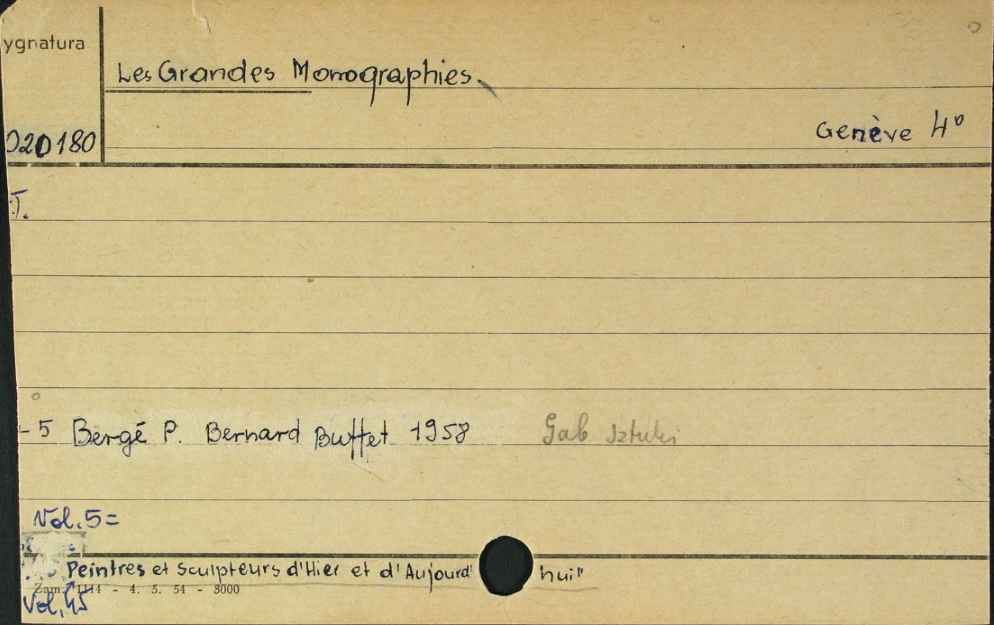 ygnatura
Les Grandes Monographies
Genève 4°
020180
T.
- 5 Bergé P. Bernard Buffet 1958 Gab Sztuki
Vol. 5 =
Peintres et Sculpteurs d'Hier et d'Aujourd'hui"
Zam. 1114 - 4. 5. 54 - 3000
Vol. 45